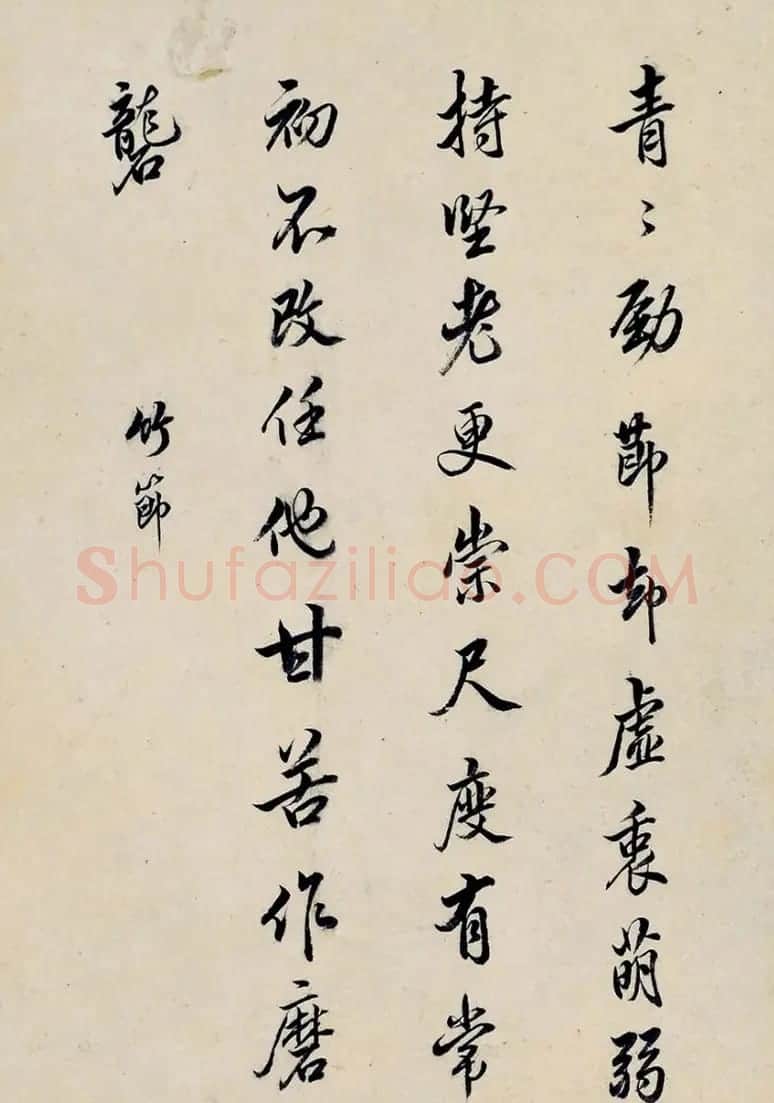 青〻勁節却虛衷萌弱
持堅老更崇尺度有常
初不改任他甘苦作磨
礱
竹節
Shufaziliao.COM